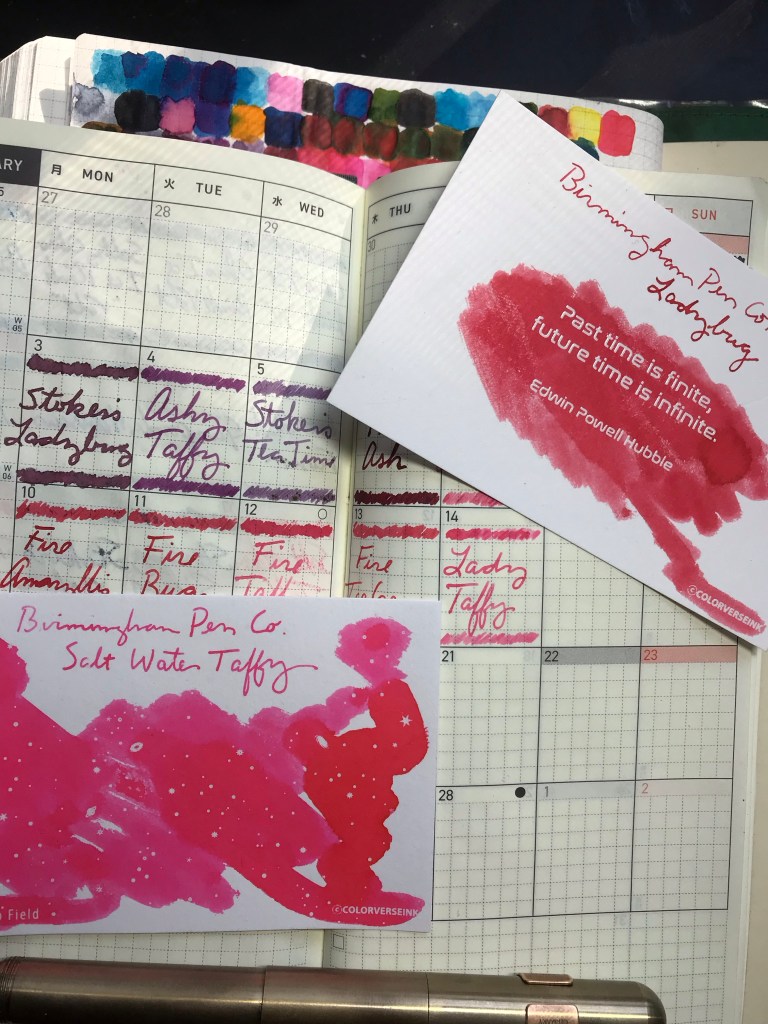 ARY
月 MON
火 TUE
水 WED
木 THU
SUN
27
28
29
30
W
05
3
4
5
Stoker's
Ladybug
Ashy
Taffy
Stoker's
Tea Time
Ash
W
06
10
11
12
13
14
Fire
Amaryllis
Fire
Bug
Fire
Taff
Fire
Lady
Taffy
21
22
23
28
1
2
Birmingham Pen Co.
Ladybug
Past time is finite,
future time is infinite.
Edwin Powell Hubble
©COLORVERSEINK
Birmingham Pen Co.
Salt Water Taffy
Field
©COLORVERSEINK